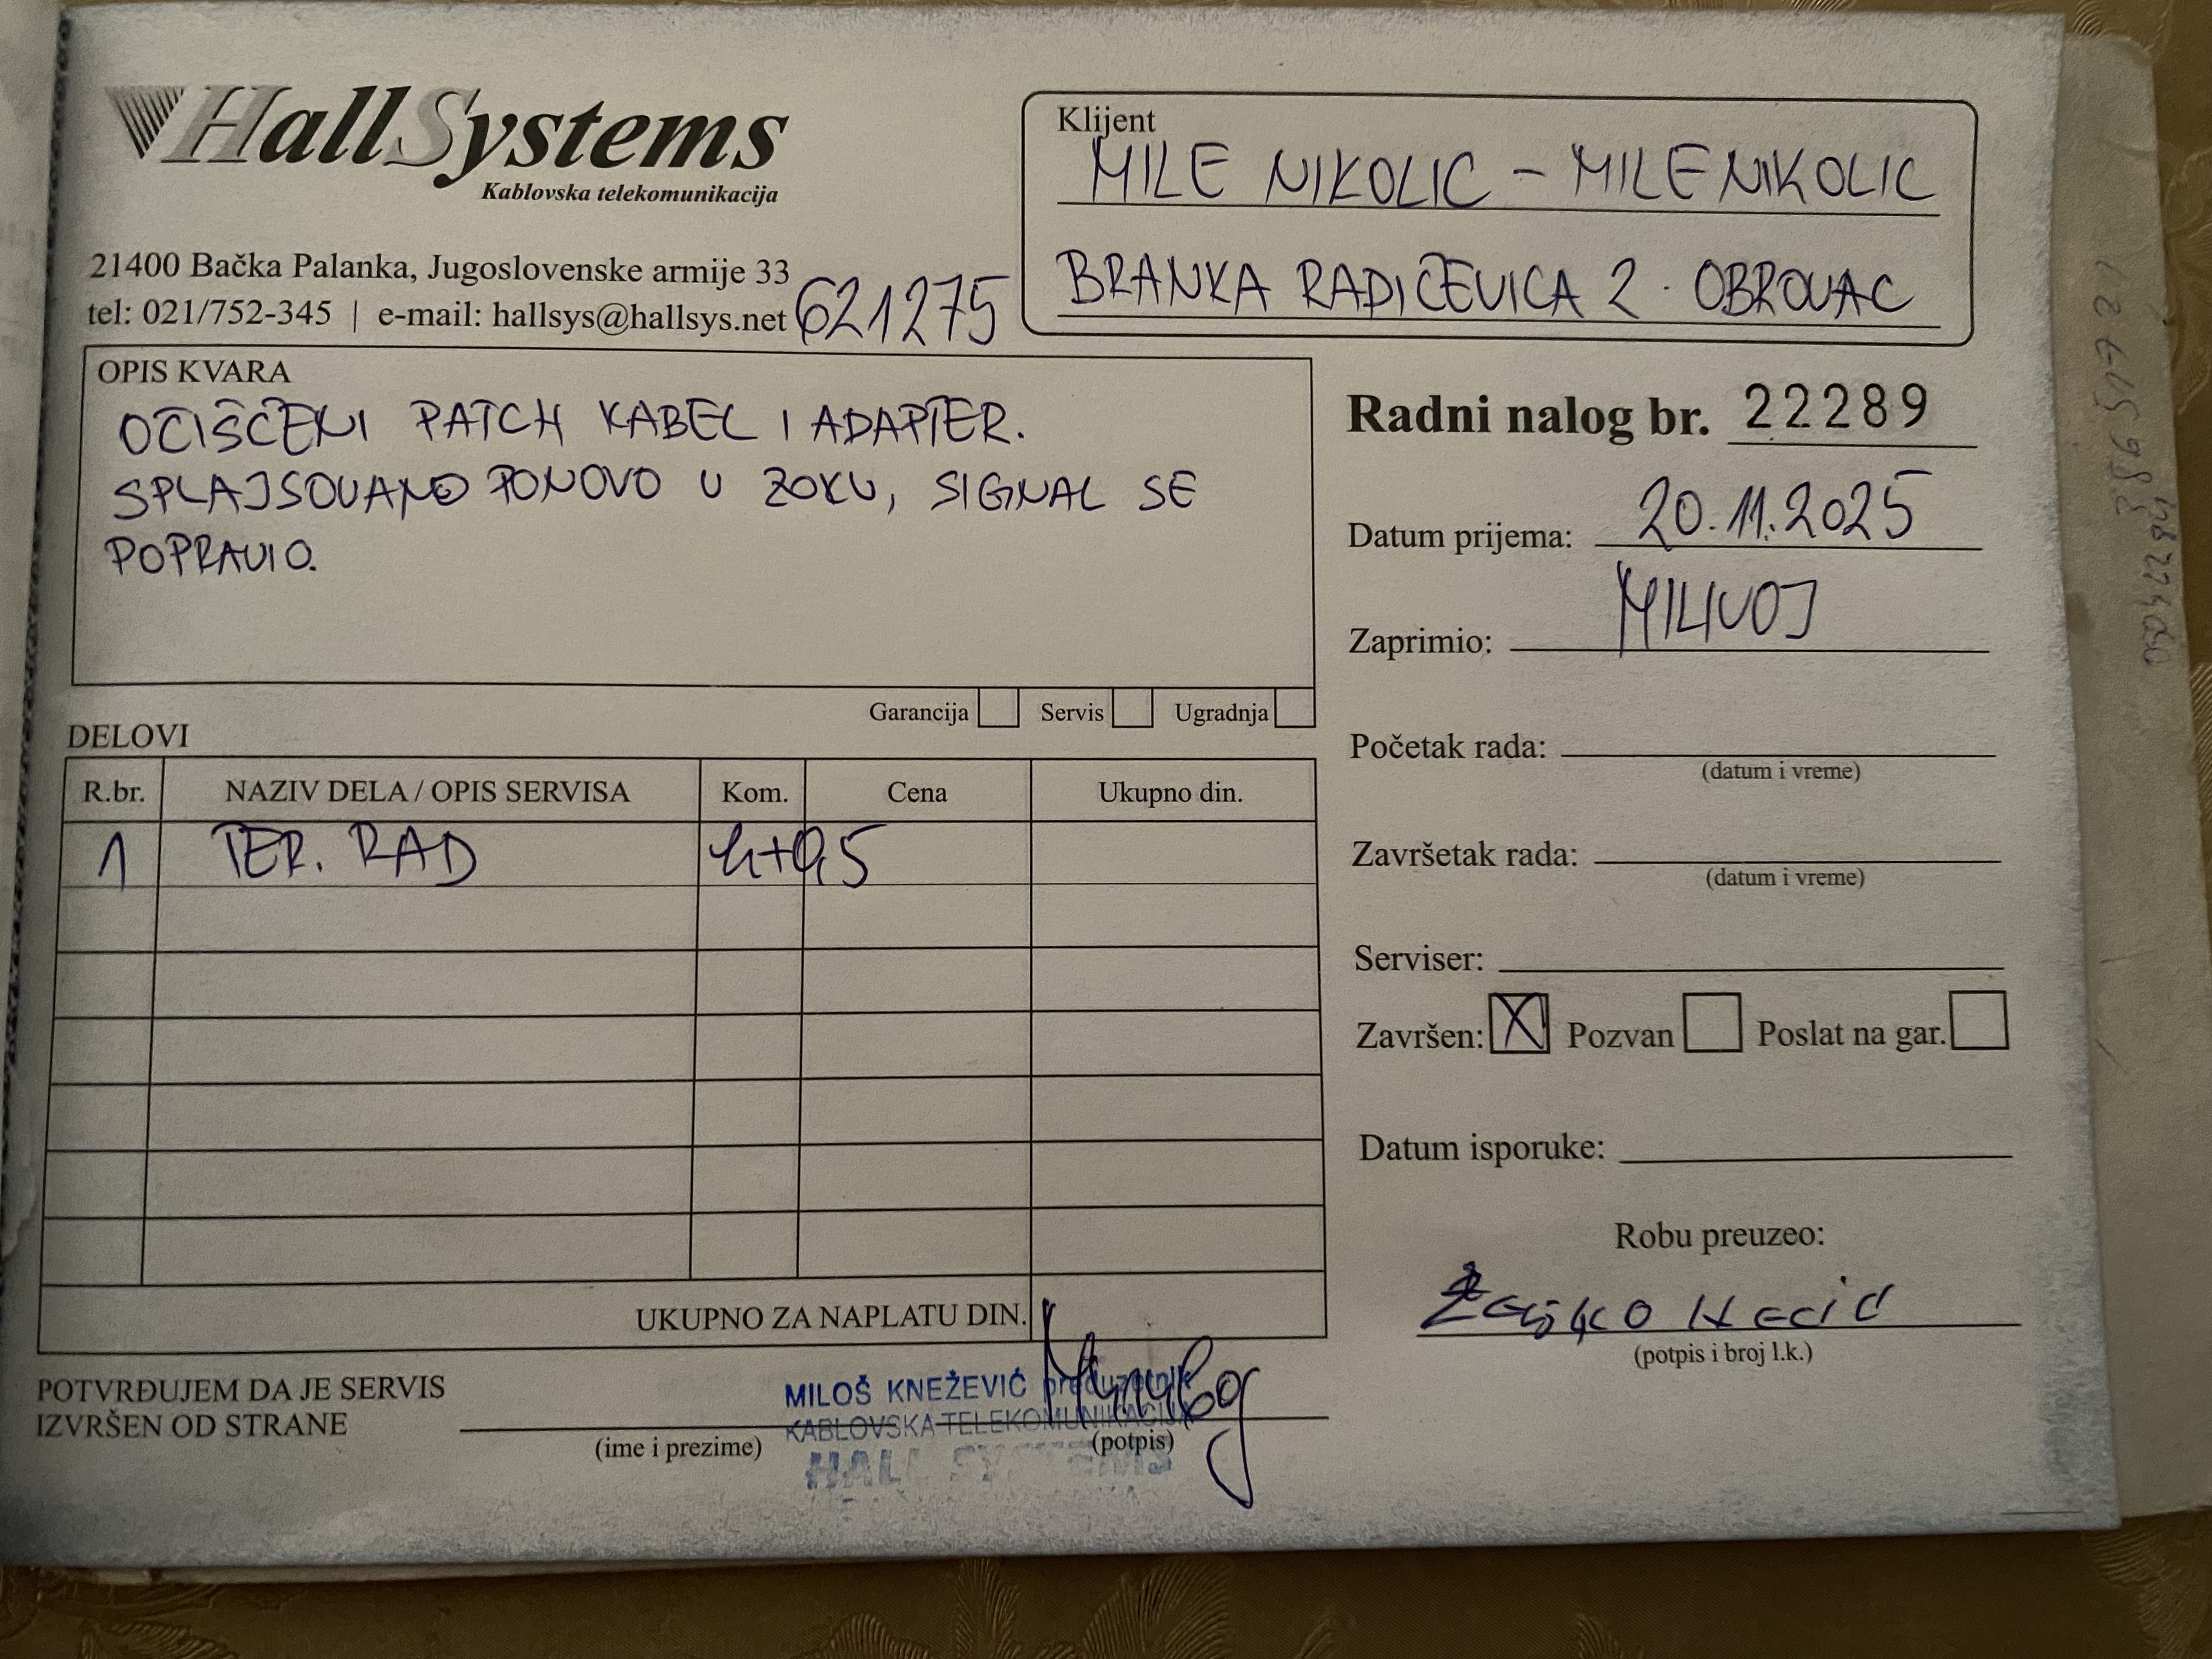 HallSystems
Kablovska telekomunikacija
21400 Bačka Palanka, Jugoslovenske armije 33
tel: 021/752-345 | e-mail: hallsys@hallsys.net
621275
Klijent
MILE NIKOLIC - MILENIKOLIC
BRANKA RADIČEVICA 2 · OBROVAC
OPIS KVARA
OČIŠČENI PATCH KABEL I ADAPTER.
SPLAJSOVANO PONOVO U ZOKU, SIGNAL SE
POPRAVIO.
Garancija Servis Ugradnja
Radni nalog br. 22289
Datum prijema: 20.11.2025
Zaprimio: MILIVOJ
Početak rada:
(datum i vreme)
Završetak rada:
(datum i vreme)
Serviser:
Završen: X Pozvan Poslat na gar.
Datum isporuke:
Robu preuzeo:
(potpis i broj l.k.)
DELOVI
R.br. NAZIV DELA / OPIS SERVISA Kom. Cena Ukupno din.
1 TER. RAD
UKUPNO ZA NAPLATU DIN.
POTVRĐUJEM DA JE SERVIS
IZVRŠEN OD STRANE
(ime i prezime) (potpis)
MILOŠ KNEŽEVIĆ preduzetnik
KABLOVSKA TELEKOMUNIKACIJA
HALL SYSTEMS